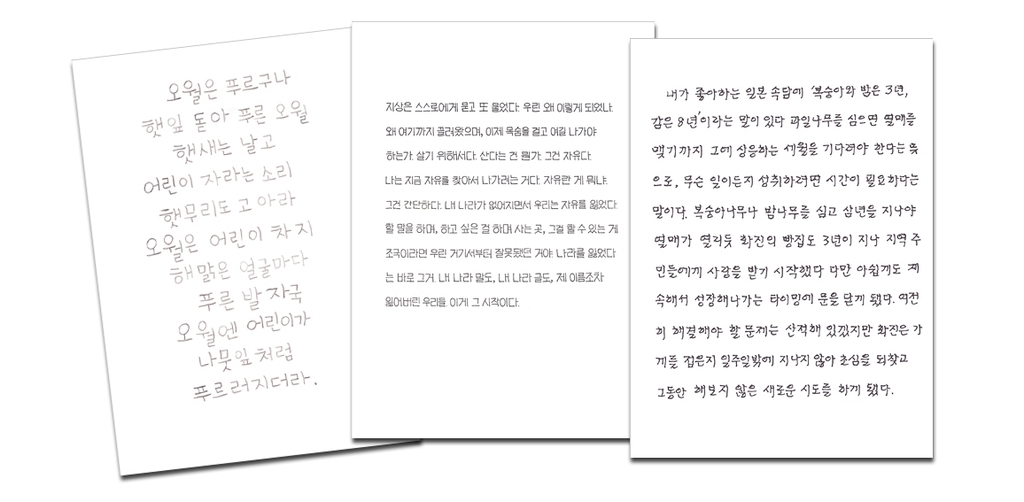 오월은 푸르구나
햇잎 돋아 푸른 오월
햇새는 날고
어린이 자라는 소리
햇무리도 고아라
오월은 어린이 차지
해맑은 얼굴마다
푸른 발자국
오월엔 어린이가
나뭇잎처럼
푸르러지더라.
지상은 스스로에게 묻고 또 물었다. 우린 왜 이렇게 되었나.
왜 여기까지 끌려왔으며, 이제 목숨을 걸고 여길 나가야
하는가. 살기 위해서다. 산다는 건 뭔가. 그건 자유다.
나는 지금 자유를 찾아서 나가려는 거다. 자유란 게 뭐냐.
그건 간단하다. 내 나라가 없어지면서 우리는 자유를 잃었다.
할 말을 하며, 하고 싶은 걸 하며 사는 곳, 그걸 할 수 있는 게
조국이라면 우린 거기서부터 잘못됐던 거야. 나라를 잃었다
는 바로 그거. 내 나라 말도, 내 나라 글도, 제 이름조차
잃어버린 우리들. 이게 그 시작이다.
내가 좋아하는 일본 속담에 '복숭아와 밤은 3년,
감은 8년'이라는 말이 있다. 과일나무를 심으면 열매를
맺기까지 그에 상응하는 세월을 기다려야 한다는 뜻
으로, 무슨 일이든지 성취하려면 시간이 필요하다는
말이다. 복숭아나무나 밤나무를 심고 삼년을 지나야
열매가 열리듯 화진의 빵집도 3년이 지나 지역 주
민들에게 사랑을 받기 시작했다. 다만 아쉽게도 계
속해서 성장해나가는 타이밍에 문을 닫게 됐다. 여전
히 해결해야 할 문제는 산적해 있겠지만 화진은 가
게를 접은지 일주일밖에 지나지 않아 초심을 되찾고
그동안 해보지 않은 새로운 시도를 하게 됐다.